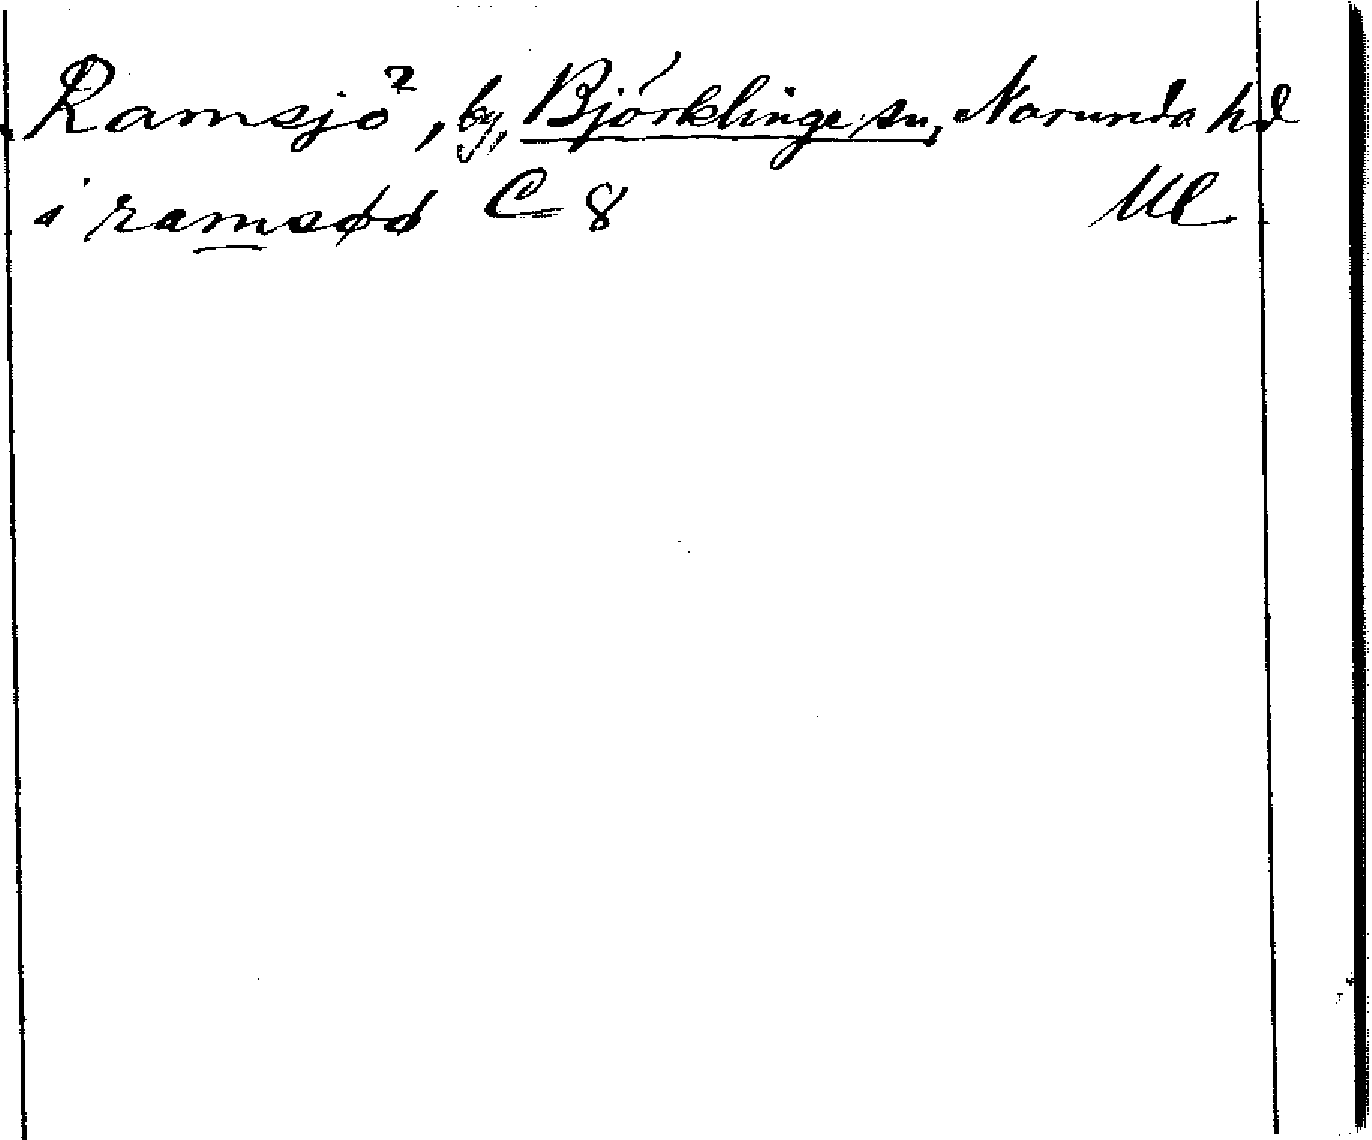 Ramsjö², by, Björklinge sn, Norunda hd
i ramsøø C 8 Ul